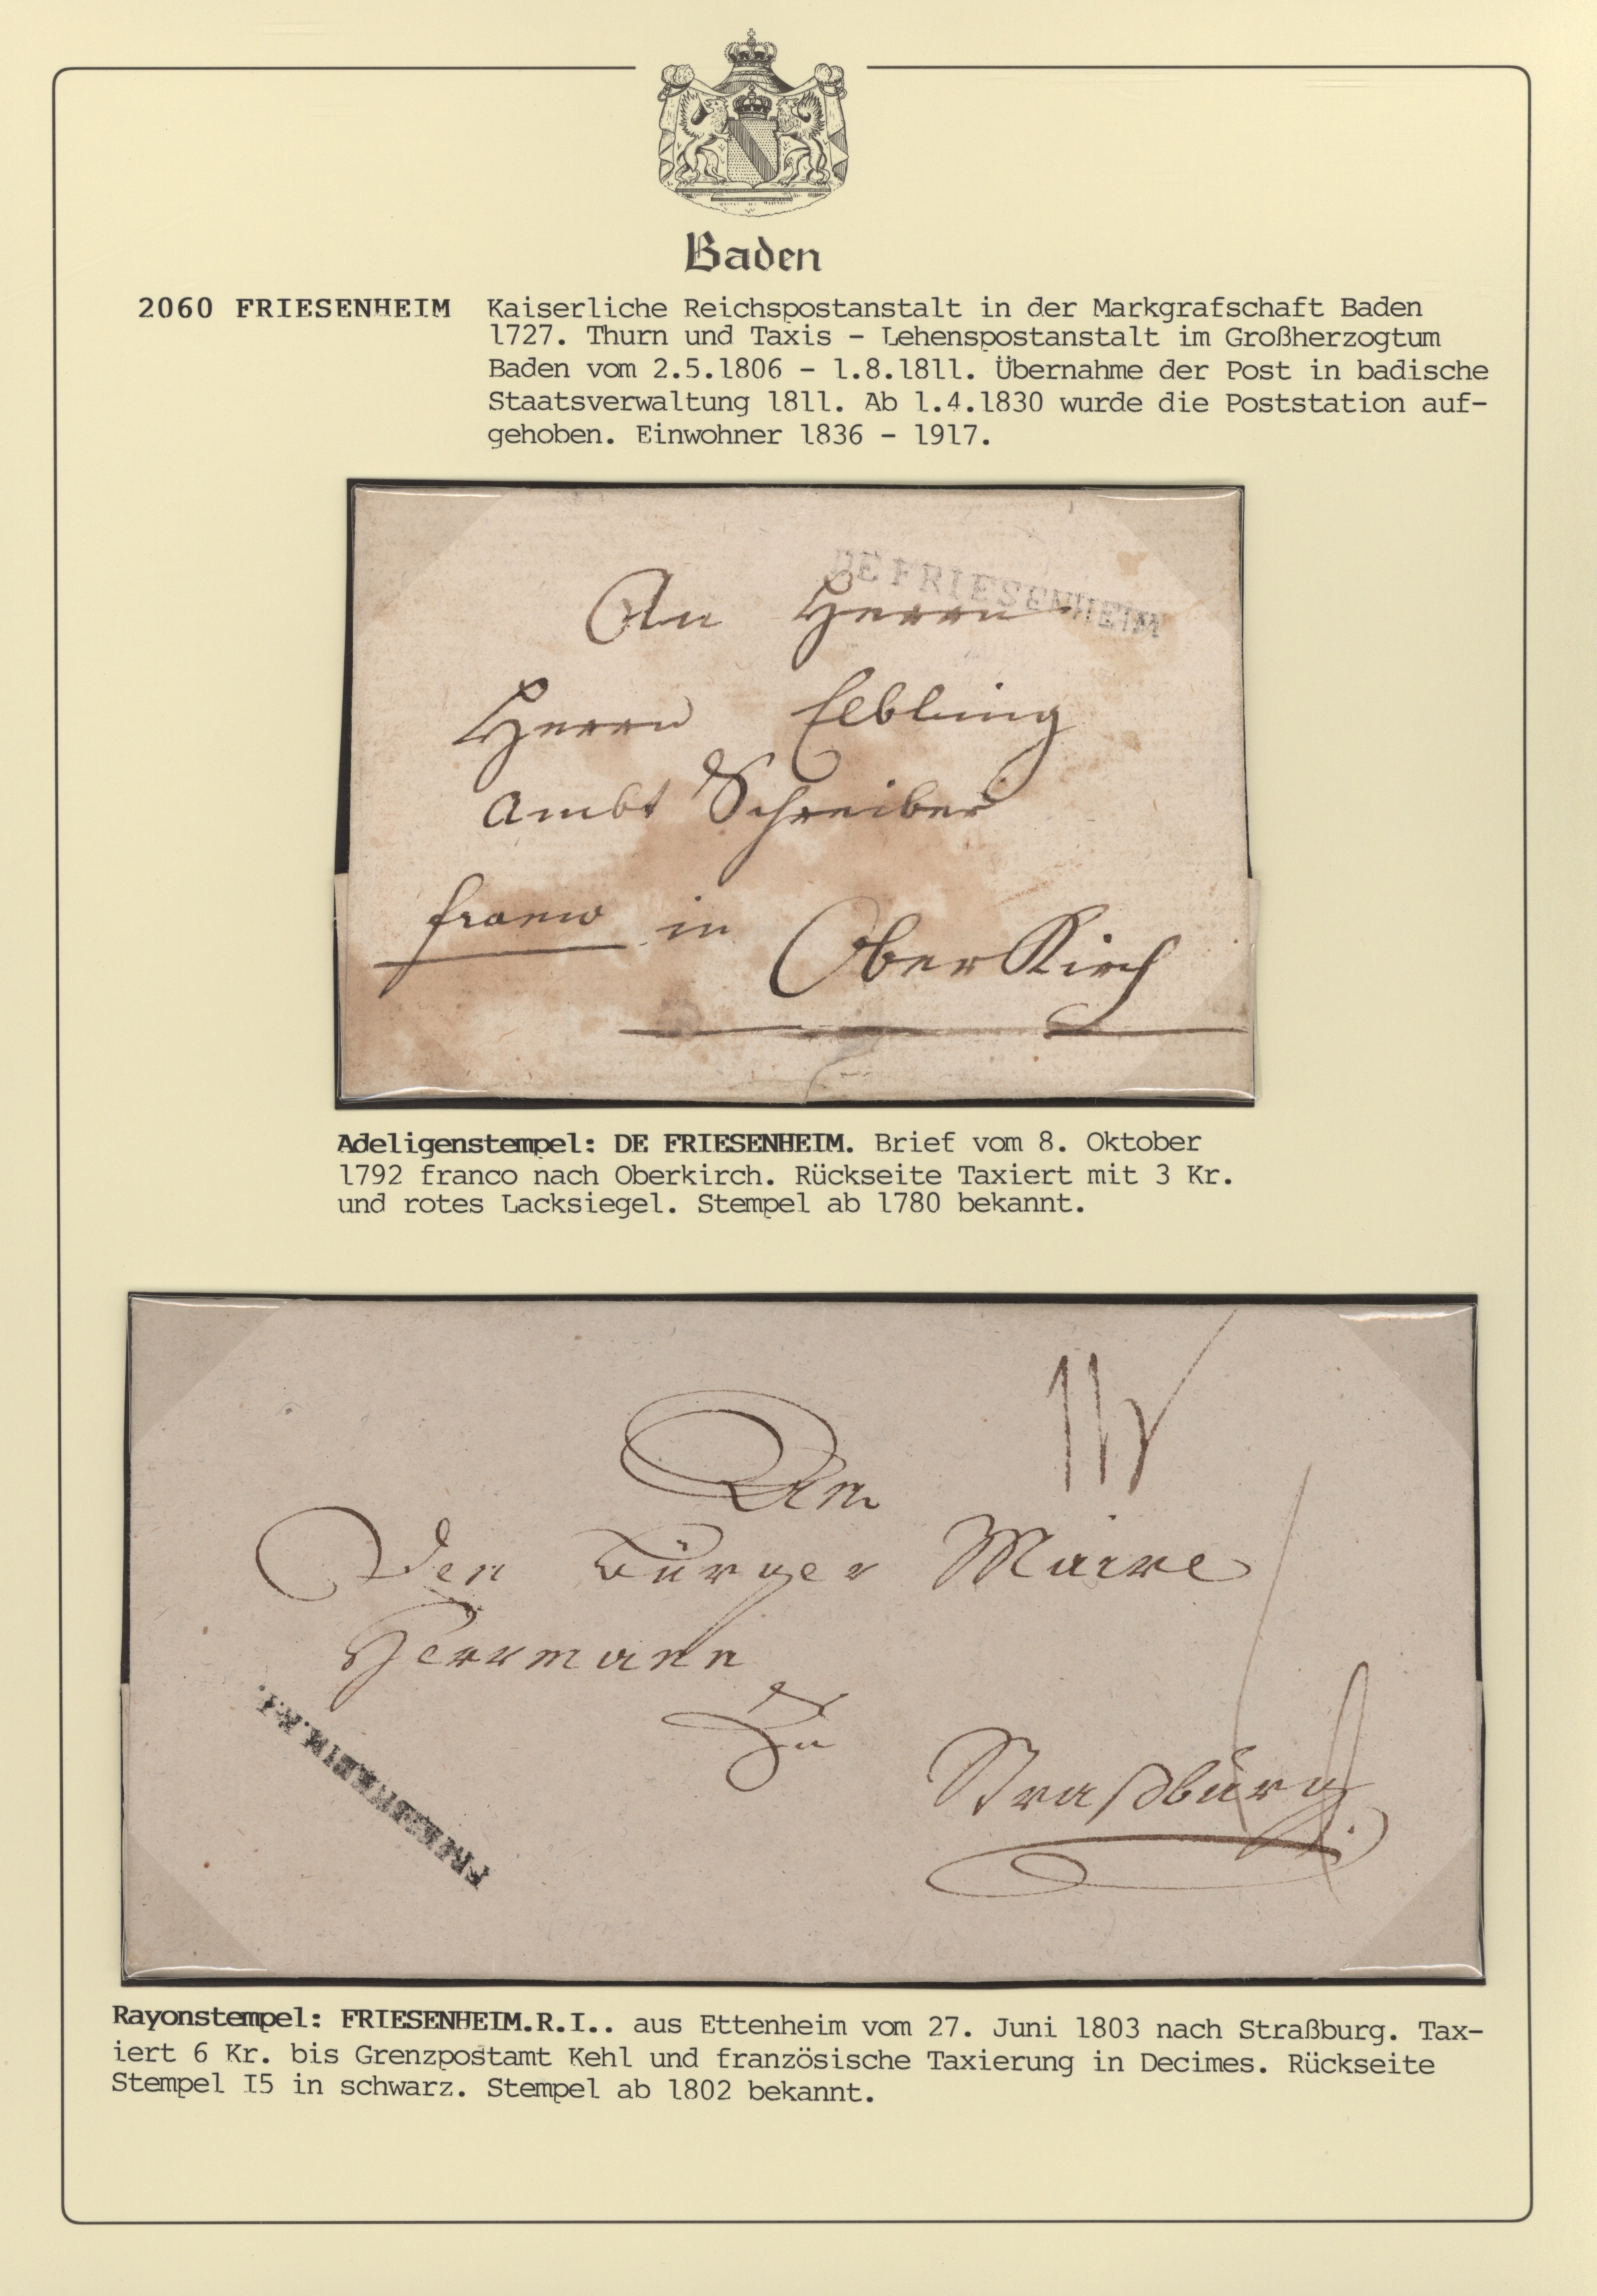 Baden
2060 FRIESENHEIM Kaiserliche Reichspostanstalt in der Markgrafschaft Baden
1727. Thurn und Taxis - Lehenspostanstalt im Großherzogtum
Baden vom 2.5.1806 - 1.8.1811. Übernahme der Post in badische
Staatsverwaltung 1811. Ab 1.4.1830 wurde die Poststation auf-
gehoben. Einwohner 1836 - 1917.
DE FRIESENHEIM
An Herrn
Herrn Elbling
Ambt Schreiber
franco in OberKirch
Adeligenstempel: DE FRIESENHEIM. Brief vom 8. Oktober
1792 franco nach Oberkirch. Rückseite Taxiert mit 3 Kr.
und rotes Lacksiegel. Stempel ab 1780 bekannt.
An
Den Bürger Maire
Herrmann
Zu
Straßburg.
FRIESENHEIM.R.I.
Rayonstempel: FRIESENHEIM.R.I.. aus Ettenheim vom 27. Juni 1803 nach Straßburg. Tax-
iert 6 Kr. bis Grenzpostamt Kehl und französische Taxierung in Decimes. Rückseite
Stempel I5 in schwarz. Stempel ab 1802 bekannt.